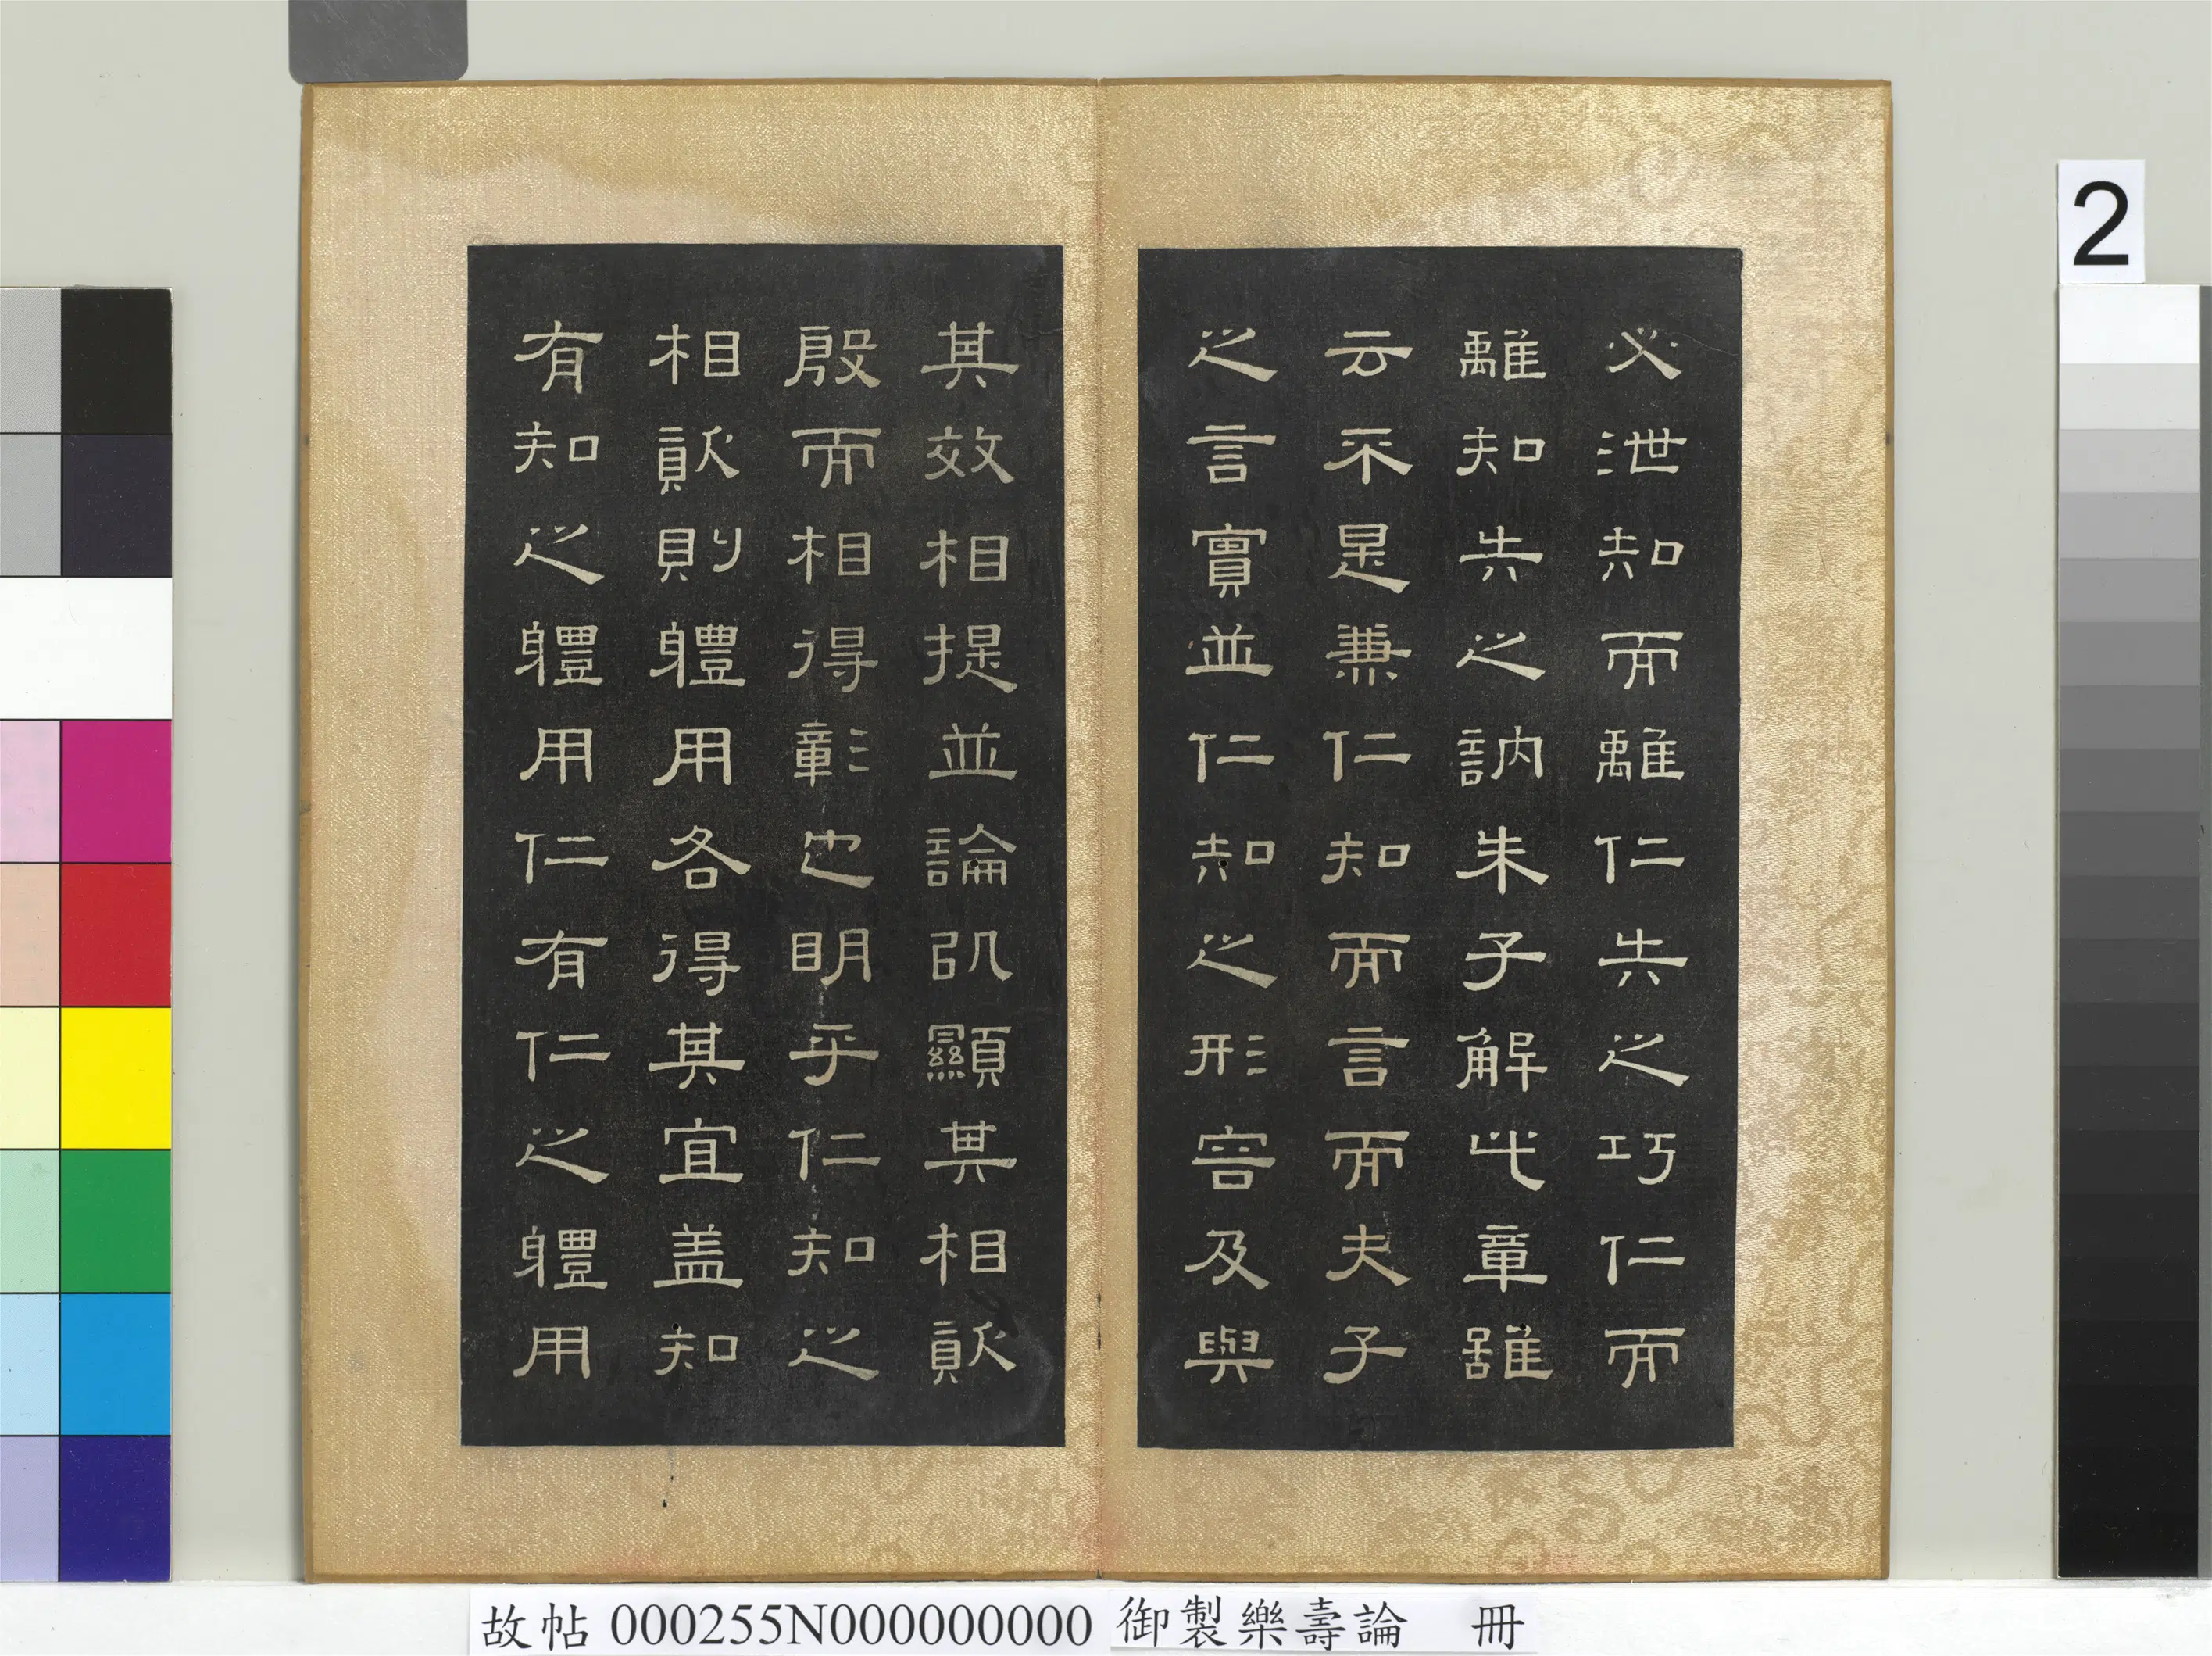 必泄知而離仁失之巧仁而
離知失之訥朱子解此章雖
云不是兼仁知而言而夫子
之言實並仁知之形容及與
其效相提並論以顯其相須
殷而相得彰也明乎仁知之
相須則軆用各得其宜盖知
有知之軆用仁有仁之軆用
2
故帖 000255N000000000 御製樂壽論 冊